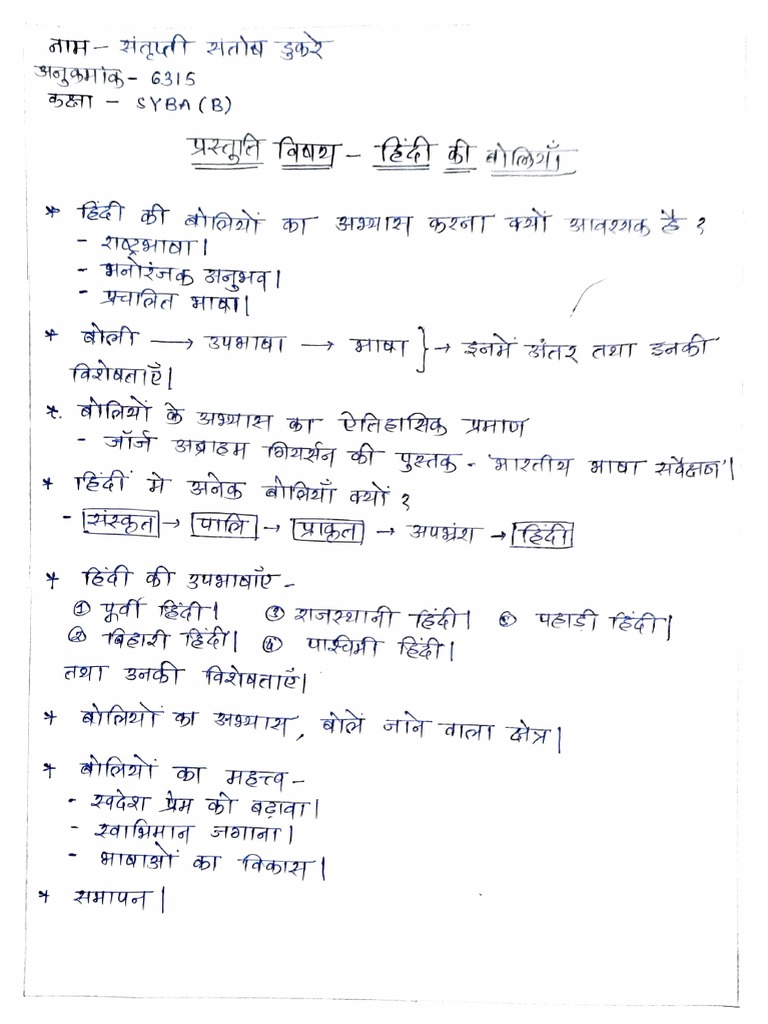 नाम - संतृप्ती संतोष डुकरे
अनुक्रमांक - 6315
कक्षा - SYBA (B)
प्रस्तुति विषय - हिंदी की बोलियाँ
* हिंदी की बोलियों का अभ्यास करना क्यों आवश्यक है ?
- राष्ट्रभाषा।
- मनोरंजक अनुभव।
- प्रचालित भाषा।
* बोली → उपभाषा → भाषा } → इनमें अंतर तथा इनकी
विशेषताएँ।
*. बोलियों के अभ्यास का ऐतिहासिक प्रमाण
- जॉर्ज अब्राहम ग्रियर्सन की पुस्तक - 'भारतीय भाषा सर्वेक्षण'।
* हिंदीं मे अनेक बोलियाँ क्यों ?
- संस्कृत → पालि → प्राकृत → अपभ्रंश → हिंदी
* हिंदी की उपभाषाएँ -
① पूर्वी हिंदी। ③ राजस्थानी हिंदी। ⑤ पहाड़ी हिंदी।
② बिहारी हिंदी। ④ पाश्चिमी हिंदी।
तथा उनकी विशेषताएँ।
* बोलियों का अभ्यास, बोलें जाने वाला क्षेत्र।
* बोलियों का महत्त्व -
- स्वदेश प्रेम को बढ़ावा।
- स्वाभिमान जगाना।
- भाषाओं का विकास।
* समापन।